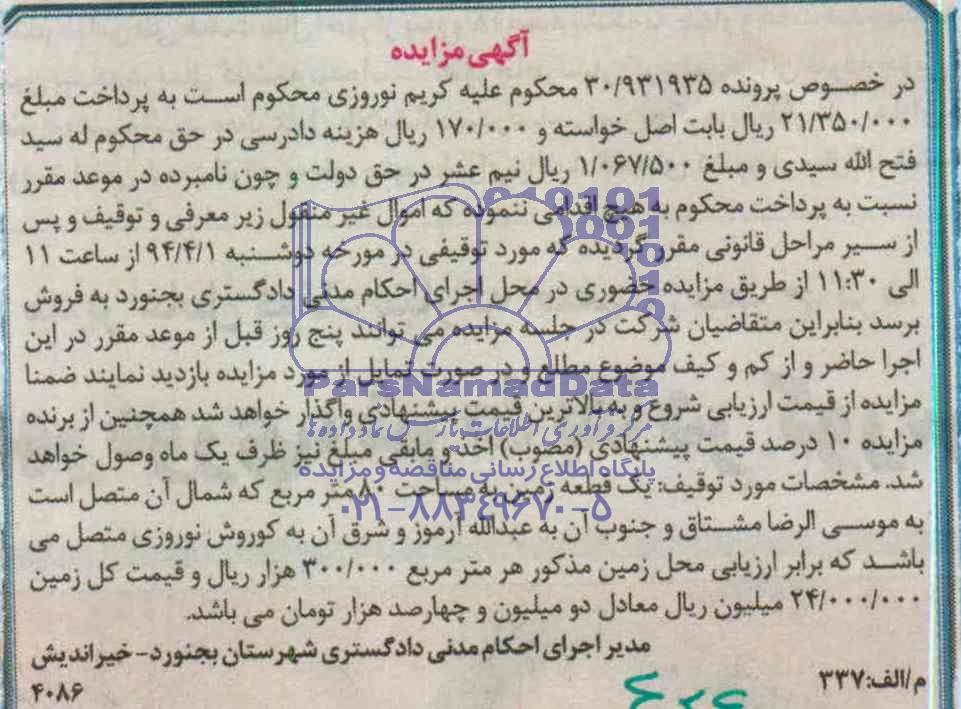 آگهی مزایده
در خصوص پرونده ۳۰/۹۳۱۹۳۵ محکوم علیه کریم نوروزی محکوم است به پرداخت مبلغ
۲۱/۳۵۰/۰۰۰ ریال بابت اصل خواسته و ۱۷۰/۰۰۰ ریال هزینه دادرسی در حق محکوم له سید
فتح الله سیدی و مبلغ ۱/۰۶۷/۵۰۰ ریال نیم عشر در حق دولت و چون نامبرده در موعد مقرر
نسبت به پرداخت محکوم به هیچ اقدامی ننموده که اموال غیر منقول زیر معرفی و توقیف و پس
از سیر مراحل قانونی مقرر گردیده که مورد توقیفی در مورخه دوشنبه ۹۴/۴/۱ از ساعت ۱۱
الی ۱۱:۳۰ از طریق مزایده حضوری در محل اجرای احکام مدنی دادگستری بجنورد به فروش
برسد بنابراین متقاضیان شرکت در جلسه مزایده می توانند پنج روز قبل از موعد مقرر در این
اجرا حاضر و از کم و کیف موضوع مطلع و در صورت تمایل از مورد مزایده بازدید نمایند ضمنا
مزایده از قیمت ارزیابی شروع و به بالاترین قیمت پیشنهادی واگذار خواهد شد همچنین از برنده
مزایده ۱۰ درصد قیمت پیشنهادی (مصوب) اخذ و مابقی مبلغ نیز ظرف یک ماه وصول خواهد
شد. مشخصات مورد توقیف: یک قطعه زمین به مساحت ۸۰ متر مربع که شمال آن متصل است
به موسی الرضا مشتاق و جنوب آن به عبدالله آرموز و شرق آن به کوروش نوروزی متصل می
باشد که برابر ارزیابی محل زمین مذکور هر متر مربع ۳۰۰/۰۰۰ هزار ریال و قیمت کل زمین
۲۴/۰۰۰/۰۰۰ میلیون ریال معادل دو میلیون و چهارصد هزار تومان می باشد.
مدیر اجرای احکام مدنی دادگستری شهرستان بجنورد- خیراندیش
م/الف:۳۳۷
۴۰۸۶
ParsNamadData
پایگاه اطلاع رسانی مناقصه و مزایده
۰۲۱-۸۸۳۴۹۶۷۰-۵